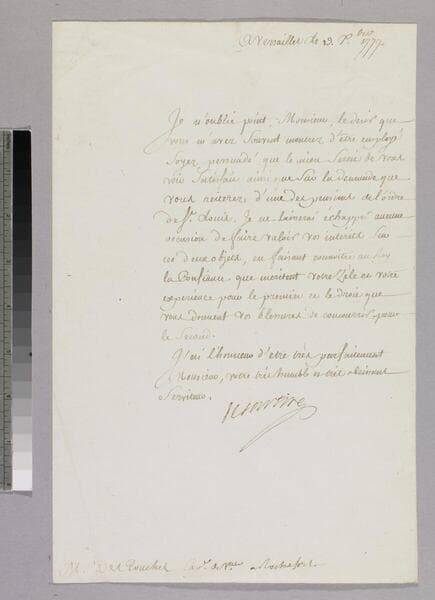 A Versailles le 19. X.bre 1777.
Je n'oublie point, Monsieur, le desir que
vous m'avez souvent montrez d'être employé
soyez persuadé que le mien seroit de vous
voir satisfait ainsi que sur la demande que
vous reiterez d'une des pensions de l'ordre
de St. Louis. Je ne laisserai échapper aucune
occasion de faire valoir vos interets sur
ces deux objets, en faisant connoitre au Roy
la Confiance que meritent votre Zele et votre
experience pour le premier et le droit que
vous donnent vos blessures de commander, pour
le Second.
J'ai l'honneur d'etre très parfaitement
Monsieur, votre très humble et très obeissant
Serviteur.
De Sartine
M. De la Touche de Rochefort.